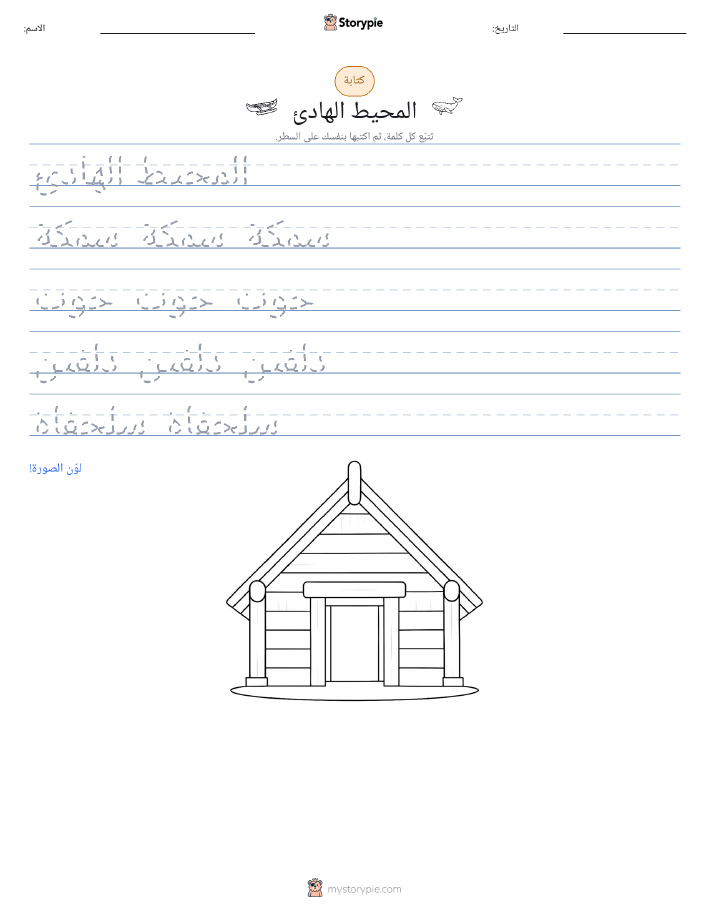 Storypie
الاسم:
التاريخ:
كتابة
المحيط الهادئ
تتبّع كل كلمة، ثم اكتبها بنفسك على السطر.
المحيط الهادئ
سمكة سمكة سمكة
حوت حوت حوت
دلفين دلفين دلفين
سلحفاة سلحفاة
لوّن الصورة!
mystorypie.com